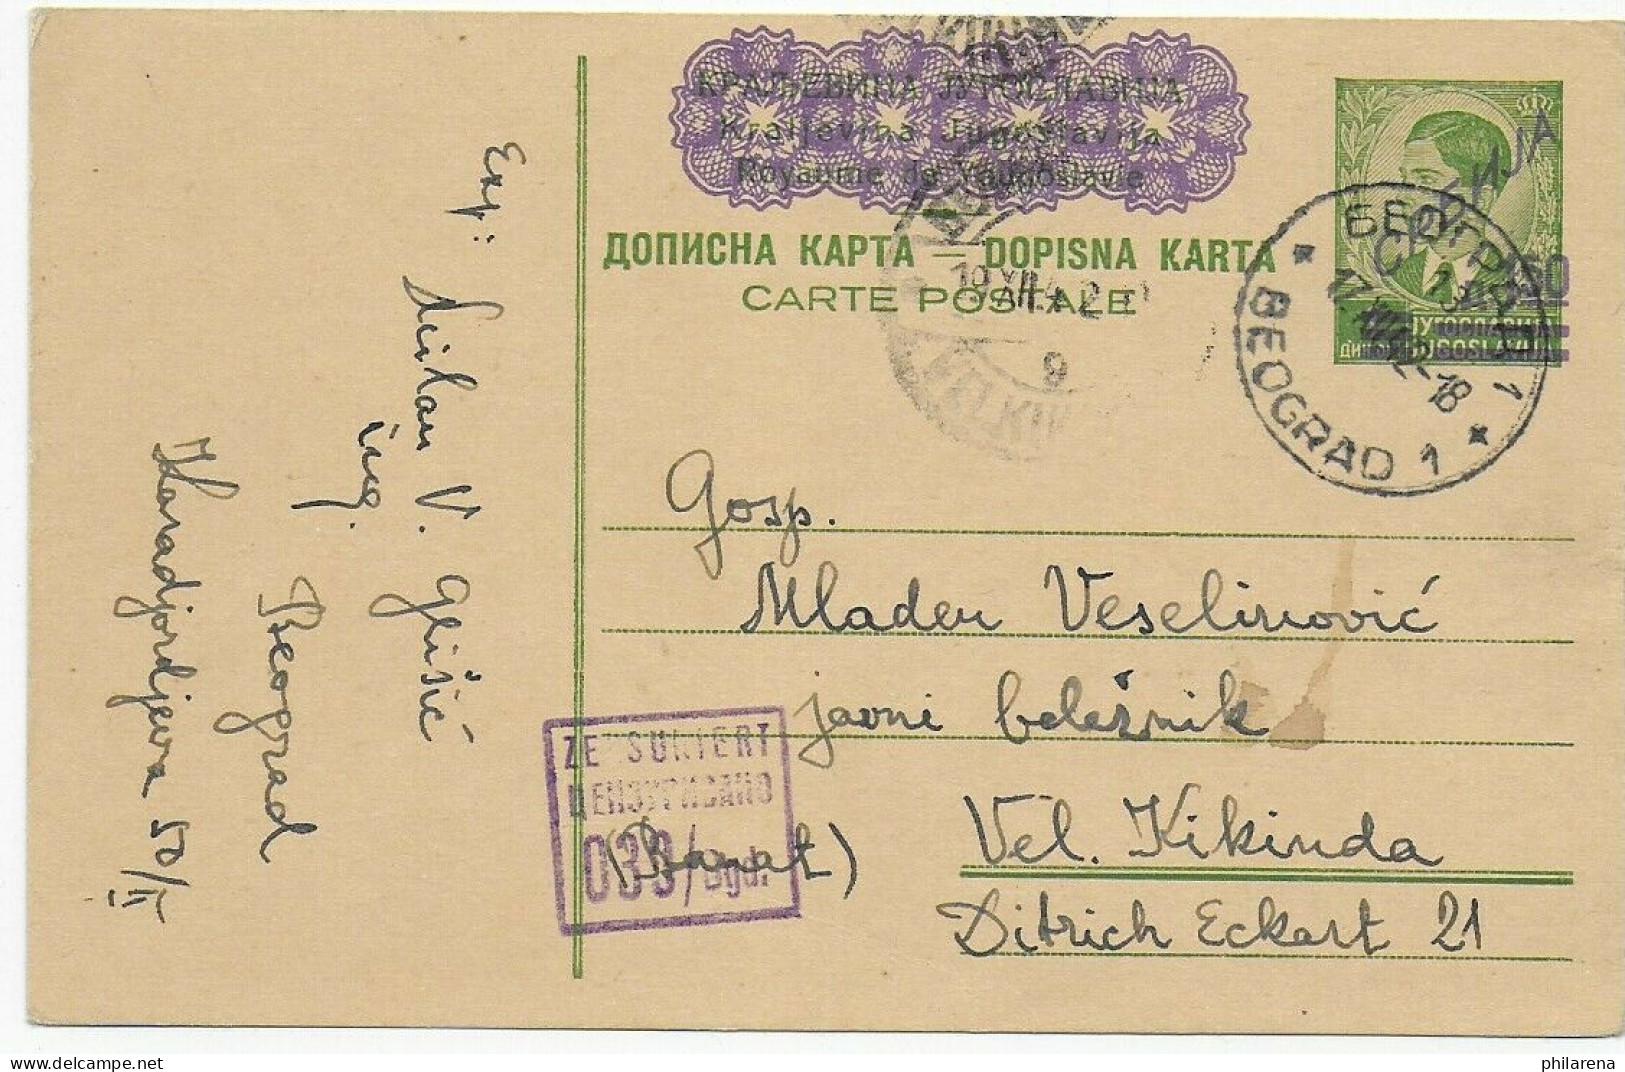 КРАЉЕВИНА ЈУГОСЛАВИЈА
Kraljevina Jugoslavija
Royaume de Yougoslavie
ДОПИСНА КАРТА — DOPISNA KARTA
CARTE POSTALE
СРБИЈА
ЈУГОСЛАВИЈА
JUGOSLAVIJA
БЕОГРАД 1
17.XII.42-18
BEOGRAD 1
19 XII 42
9
Exp:
Milan V. Glišić
ing.
Beograd
Karadjordjeva 50/II
Gosp.
Mladen Veselinović
javni beležnik
Vel. Kikinda
(Banat)
Ditrich Eckart 21
ZENSURIERT
ЦЕНЗУРИСАНО
033/Bgd.
philarena.com